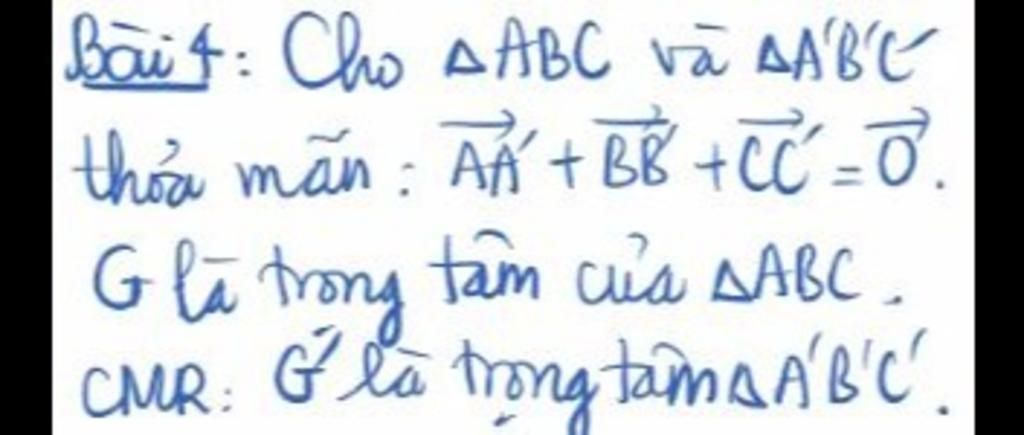 Bài 4: Cho △ABC và △A'B'C'
thỏa mãn: $\overrightarrow{AA'} + \overrightarrow{BB'} + \overrightarrow{CC'} = \overrightarrow{0}$.
G là trong tâm của △ABC.
CMR: G' là trọng tâm △A'B'C'.